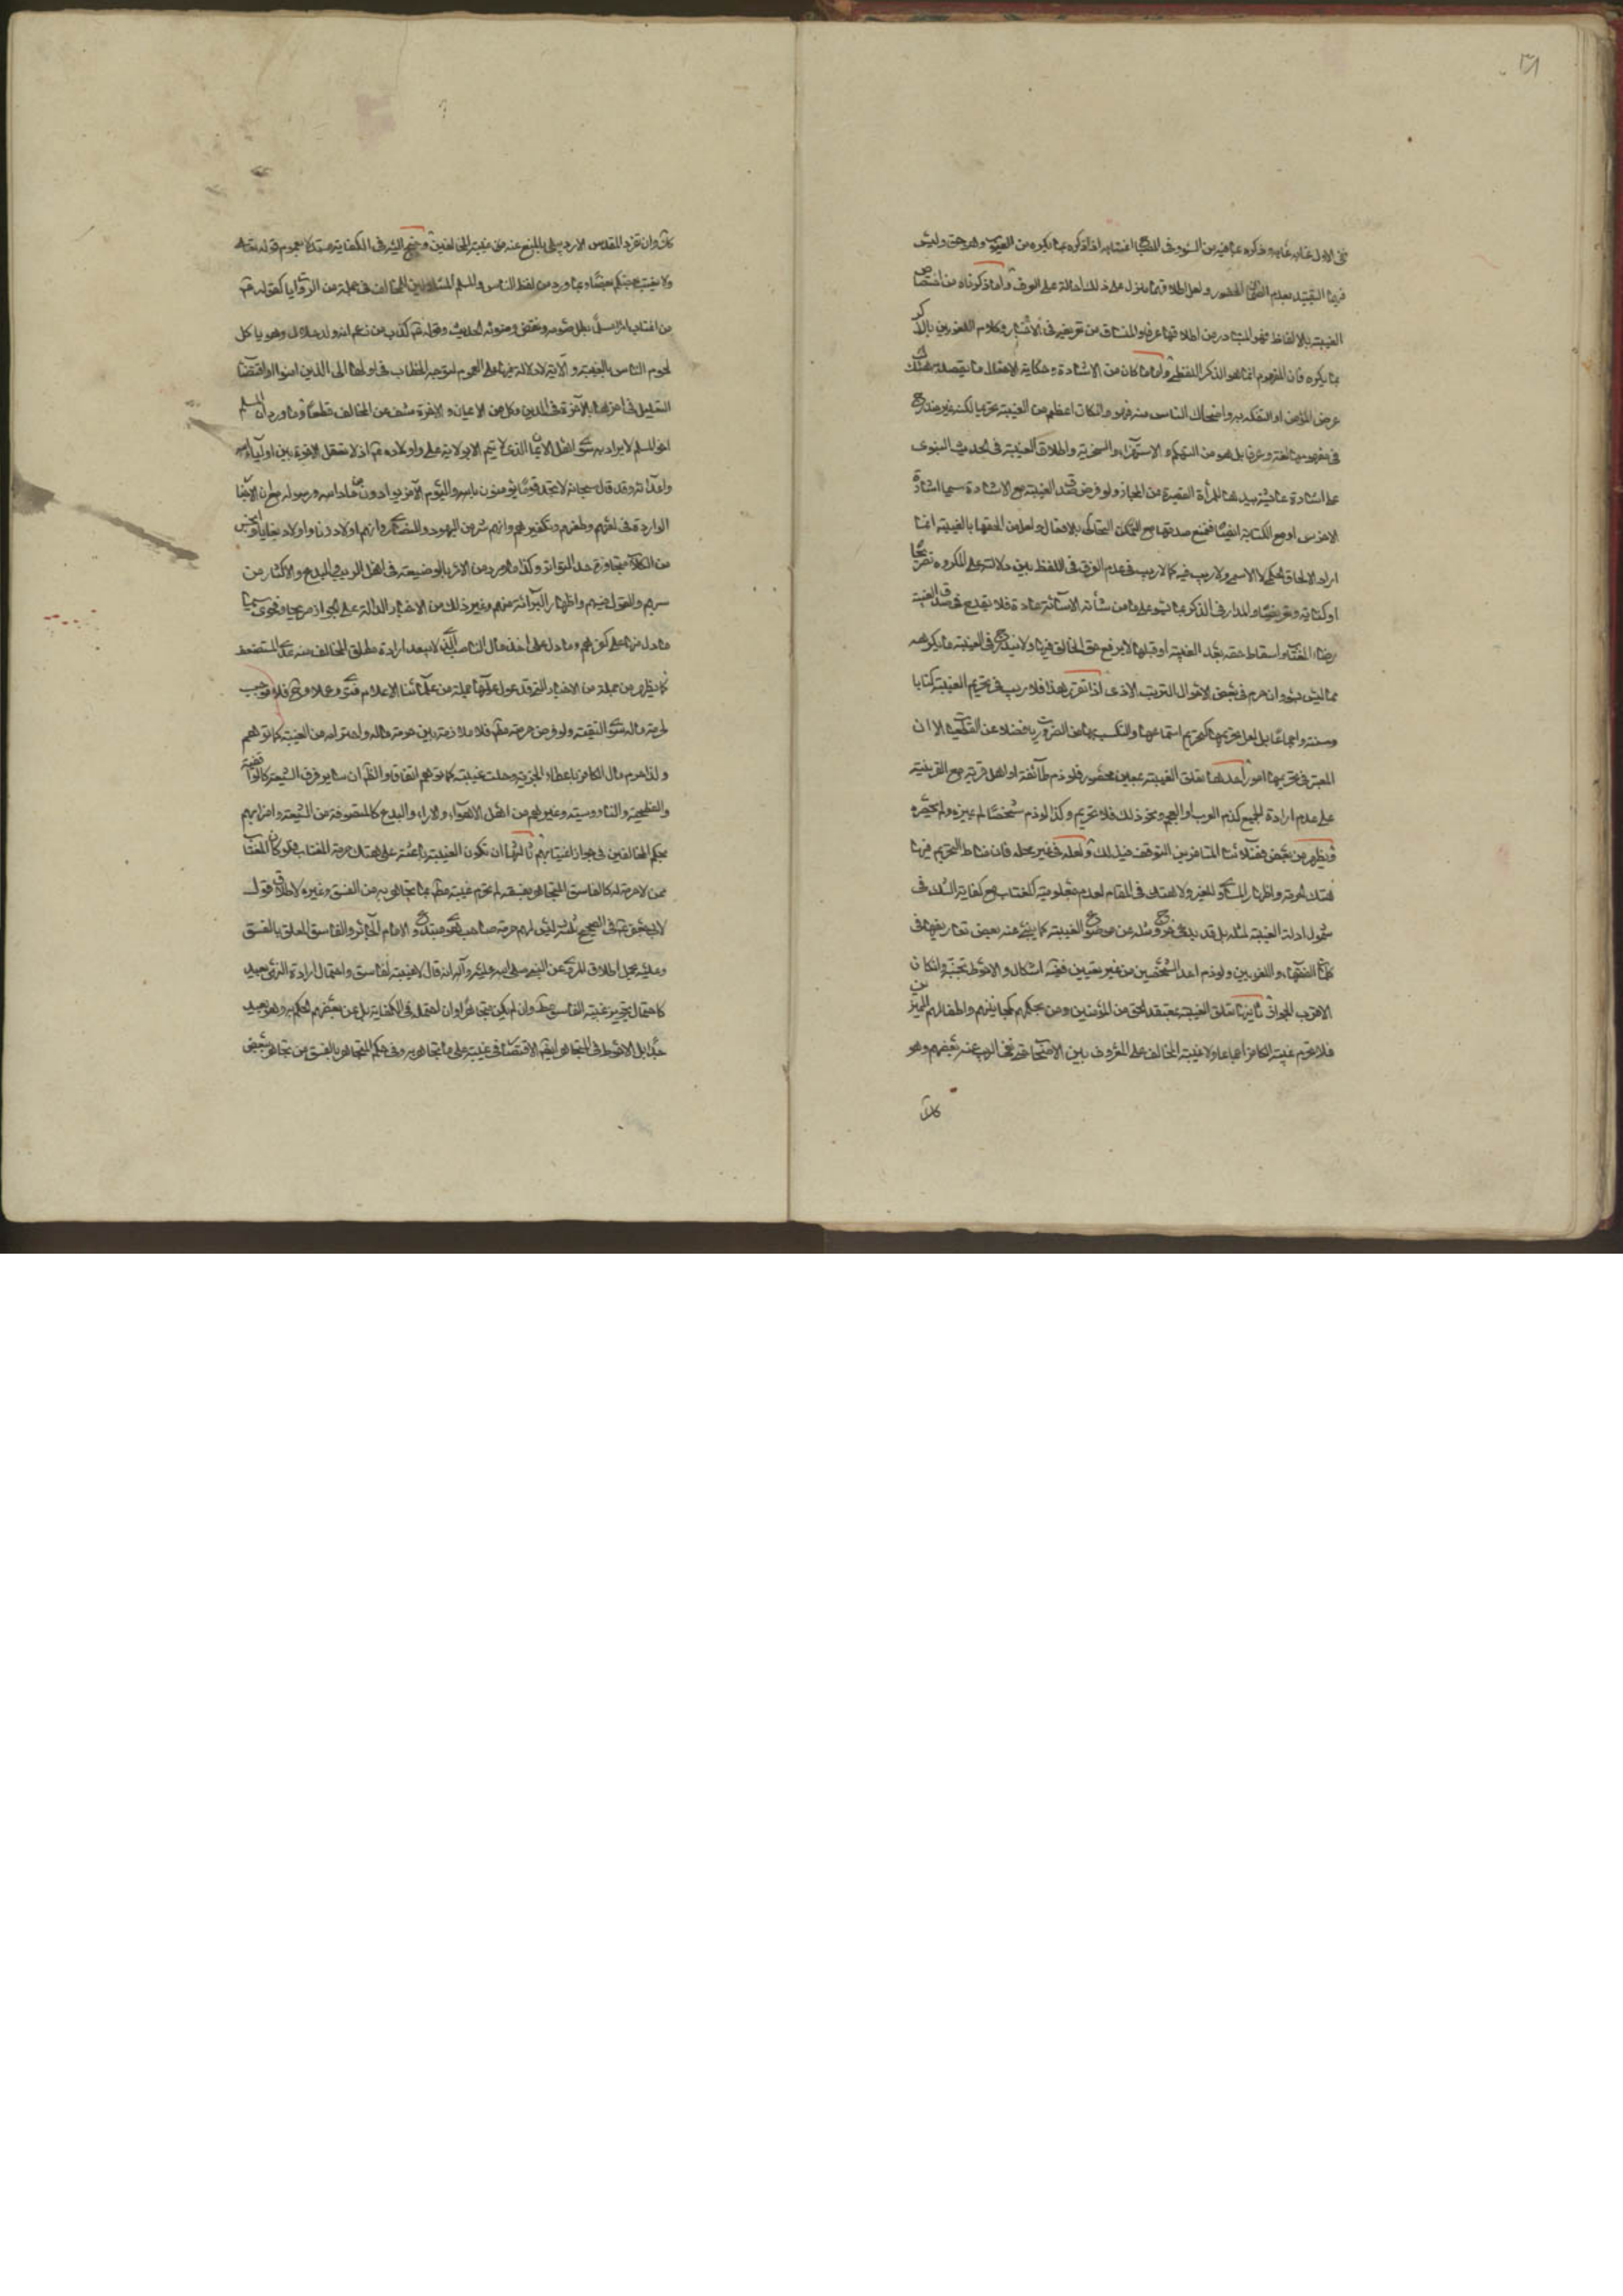 فى الاول غابه عابه وذكره بما فيه من السوء وفى اغتابه اذا ذكره بما يكره من العيوب وهو حق وليس
فيها التقييد بعدم الحضور ولعل اطلاقها ينزل على ذلك احالة على العرف واما ذكرناه من اختصاص
الغيبة بالالفاظ فهو المتبادر من اطلاقها عرفا والمنساق من تعريفه فى الاخبار وكلام اللغويين بالذكر
بما يكره فان المفهوم انما هو الذكر اللفظى واما ما كان من الاشارة وحكاية الافعال مما يقصد به هتك
عرض المؤمن او التفكه به واضحاك الناس منه فهو وان كان اعظم من الغيبة تحريما لكنه غير مندرج
فى مفهومها لغة وعرفا بل هو من التهكم والاستهزاء والسخرية واطلاق الغيبة فى الحديث النبوى
على اشارة عائشة بيدها للمرأة القصيرة من المجاز ولو فرض قصد الغيبة مع الاشارة سيما اشارة
الاخرس او مع الكتابة ايضا فمنع صدقها مع التمكن بالافعال ولعل من الحقها بالغيبة انما
اراد الالحاق الحكمى لا الاسمى ولا ريب فيه كما لا ريب فى عدم الفرق فى اللفظ بين دلالته على المكروه تصريحا
او كناية وتعريضا والمدار فى الذكر بما يسوء على ما من شأنه الاسائة عادة فلا يقدح فى صدق الغيبة
رضاء المغتاب واسقاط حقه بعد الغيبة او قبلها لا يرفع حق الخالق فيها ولا يندرج فى الغيبة ما يكرهه
مما ليس بسوء وان حرم فى بعض الاحوال لترتب الاذى اذا تقرر هذا فلا ريب فى تحريم الغيبة كتابا
وسنة واجماعا بل لعل تحريمها كتحريم استماعها والتكسب بها من الضروريات فضلا عن القطعيات الا ان
المعتبر فى تحريمها امور احدها تعلق الغيبة بمعين محصور فلو ذم طائفة او اهل قرية مع القرينة
على عدم ارادة الجميع كذم العرب او العجم ونحو ذلك فلا تحريم وكذا لو ذم شخصا لم يميزه ولم يحصره
ويظهر من بعض فضلائنا المتأخرين التوقف فى ذلك ولعله فى غير محله فان مناط التحريم فيها
هتك الحرمة واظهار المساوى للغير ولا هتك فى المقام لعدم معلومية المغتاب مع كفاية الشك فى
شمول ادلة الغيبة لمثله بل قد يدعى خروج مثله عن موضوع الغيبة كما ينبئ عنه بعض تعاريفها فى
كلمات الفقهاء واللغويين ولو ذم احد الشخصين من غير تعيين ففيه اشكال والاحوط تجنبه وان كان
الاقرب الجواز ثانيها تعلق الغيبة بمعتقد الحق من المؤمنين ومن بحكمهم كمجانينهم واطفالهم المميزين
فلا تحرم غيبة الكافر اجماعا ولا غيبة المخالف على المعروف بين الاصحاب نفى الريب عنه بعضهم وهو
كذلك
كذلك وان تفرد المقدس الاردبيلى بالمنع عنه من غيبة المخالفين وجنح اليه فى الكفاية مستدلا بعموم قوله تعالى
ولا يغتب بعضكم بعضا وبما ورد من لفظ الناس والمسلم الشاملين للمخالف فى جملة من الروايا كقوله
من اغتاب امرأ مسلما بطل صومه ونقض وضوئه الحديث وقوله كذب من زعم انه ولد حلال وهو يأكل
لحوم الناس بالغيبة والاية لا دلالة فيها على العموم لتوجه الخطاب فى اولها الى الذين امنوا واقتضاء
التعليل فى اخرها بالاخوة فى الدين وكل من الايمان والاخوة منتف عن المخالف قطعا وما ورد ان المسلم
اخو المسلم لا يراد به سوى اهل الايمان الذى لا يتم الا بولاية على واولاده اذ لا تعقل الاخوة بين اولياء الله
واعدائه وقد قال سبحانه لا تجد قوما يؤمنون بالله واليوم الاخر يوادون من حاد الله ورسوله على ان الاخبار
الواردة فى لعنهم وطعنهم وتكفيرهم وانهم شر من اليهود والنصارى وانهم اولاد زنا واولاد بغايا وانجس
من الكلاب متجاوزة حد التواتر وكذا ما ورد من الامر بالوضيعة فى اهل الريب والبدع والاكثار من
سبهم والقول فيهم واظهار البرائة منهم وغير ذلك من الاخبار الدالة على الجواز صريحا وفحوى سيما
ما دل منها على كفرهم وما دل على اخذ مال الناصب الذى لا يبعد ارادة مطلق المخالف منه عدا المستضعف
كما يظهر من جملة من الاخبار التى قد عول عليها جملة من علمائنا الاعلام فتوى وعملا وح فلا موجب
لحرمة ماله سوى التقية ولو فرض حرمته مطلقا فلا ملازمة بين حرمة ماله واحترامه من الغيبة كما توهم
ولذا حرم مال الكافر باعطاء الجزية وحلت غيبته كما توهم اتفاقا والظاهر ان سائر فرق الشيعة كالواقفية
والفطحية والناووسية وغيرهم من اهل الاهواء والاراء والبدع كالمتصوفة من الشيعة واضرابهم
بحكم المخالفين فى جواز اغتيابهم ثالثها ان تكون الغيبة باعثة على هتك حرمة المغتاب فلو كان المغتاب
ممن لا حرمة له كالفاسق المتجاهر بفسقه لم تحرم غيبته مطلقا بما تجاهر به من الفسق وغيره لاطلاق قول
الصحيح ثلثة ليس لهم حرمة صاحب هوى مبتدع والامام الجائر والفاسق المعلن بالفسق
وعليه يحمل اطلاق المروى عن النبى صلى الله عليه وآله انه قال لا غيبة لفاسق واحتمال ارادة النهى بعيد
كاحتمال تجويز غيبة الفاسق مطلقا وان لم يكن متجاهرا وان احتمله فى الكفاية بل عن بعضهم الحكم به وهو بعيد
جدا بل الاحوط فى المتجاهر ايضا الاقتصار فى غيبته على ما تجاهر به وفى حكم المتجاهر بالفسق من تجاهر ببعض